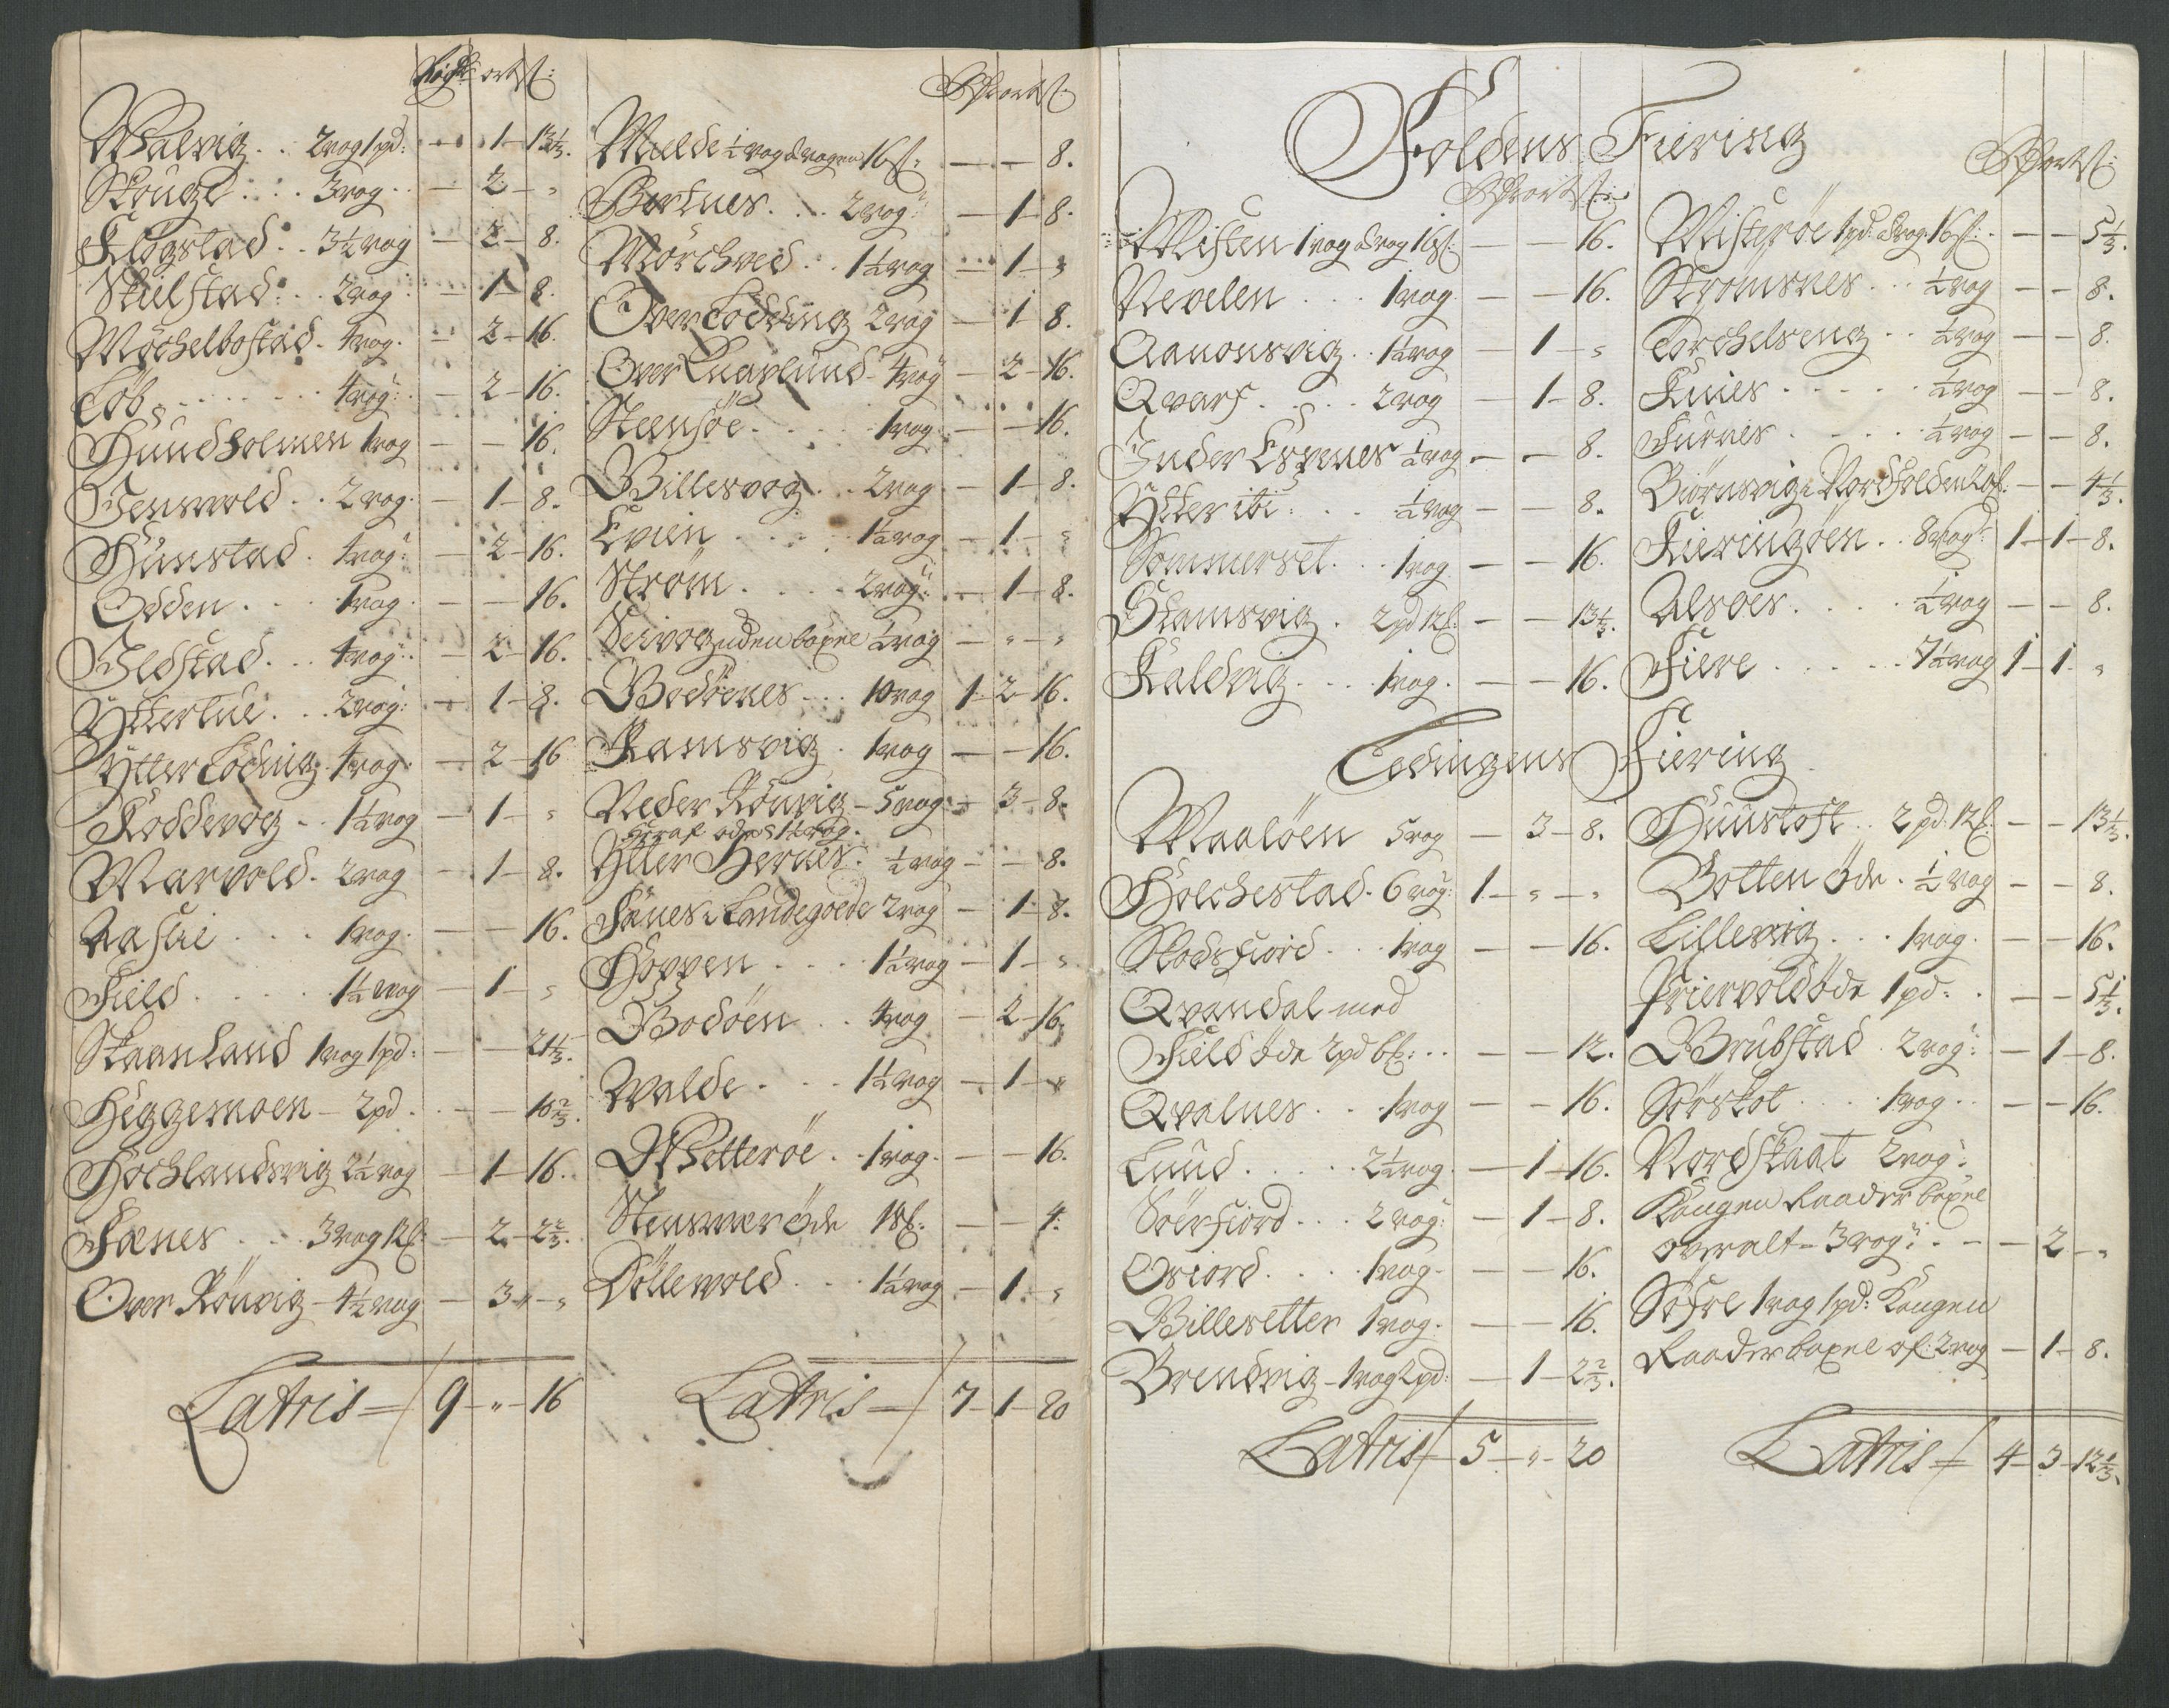 ort ß:
Walvig . . 2 vog 1 pd: — 1 — 13 1/3.
Skougl . . . 3 vog . . — 2 — "
Klogstad . . 3 1/2 vog — 2 — 8.
Skielstad . . 2 vog — 1 — 8.
Mochelbostad . 4 vog . — 2 — 16.
Løb . . . . . 4 vog: — 2 — 16.
Hundholmen 1 vog — — 16.
Jensvold . . 2 vog . — 1 — 8.
Hunstad . 4 vog: — 2 — 16.
Odden . . . 1 vog . — — 16.
Ildstad . . . 4 vog: — 2 — 16.
Ytterlue . . . 2 vog: — 1 — 8.
Ytter Løding . 4 vog: — 2 — 16
Koddevog . . 1 1/2 vog — 1 — "
Marvold . 2 vog — 1 — 8.
1 vog . — — 16.
Field . . . . 1 1/2 vog — 1 — "
Skaanland 1 vog 1 pd: — — 21 1/3.
Heggemoen — 2 pd . — — 10 2/3.
Hochlandsvig 2 1/2 vog — 1 — 16.
Fænes . . . 3 vog 12 ß: — 2 — 2 2/3.
Over Rönvig — 4 1/2 vog — 3 — "
Latris — 9 — " — 16
ort ß:
Mulde 1/2 vog à vogen 16 ß: — — 8.
Bertnes . . . 2 vog: — 1 — 8.
Mörchved . . 1 1/2 vog — 1 — "
Over Løding 2 vog — 1 — 8.
Over Quarlund — 4 vog — 2 — 16.
Steensöe . . . . 1 vog . — — 16.
Billesvog . . . 2 vog — 1 — 8.
Evien . . . . 1 1/2 vog — 1 — "
Strøm . . . . 2 vog: — 1 — 8.
Seivog uden bøxel 1/2 vog — " — "
Bodöenes . . . 10 vog 1 — 2 — 16.
Ramsvig . 1 vog — — 16.
Neder Rönvig — 5 vog: — 3 — 8.
Ytter Hernes . 1/2 vog — — 8.
Fænes i Landegoede 2 vog — 1 — 8.
Hoppen . . . . 1 1/2 vog — 1 — "
Bodöen . . 4 vog — 2 — 16.
Walde . . . 1 1/2 vog — 1 — "
Wetteröe . . 1 vog . — — 16.
Stensvær öde 18 ß. — — 4.
Döllevold . . . 1 1/2 vog — 1 . "
Latris — 7 — 1 — 20
Foldens Fiering
ort ß:
Misten 1 vog à vog 16 ß: — — 16.
Nevelen . . . 1 vog — — 16.
Aanonsvig . . 1 1/2 vog — 1 — "
Qvarf . . . . 2 vog — 1 — 8.
Inder Espenes 1/2 vog — — 8.
Ytter ibi . . . 1/2 vog — — 8.
Sommerset . . 1 vog — — 16.
Stamsvig . 2 pd 12 ß. — — 13 1/3.
Kaldvig . . . 1 vog . — — 16.
ort ß:
Misteröe 1 pd: à vog 16 ß: . — — 5 1/3.
Strømsnes . . 1/2 vog — — 8.
Torchelseng . . 1/2 vog — — 8.
Knies . . . . . 1/2 vog — — 8.
Furnes . . . . 1/2 vog — — 8.
Biörnsvig i Nordfolden — — 4 1/3.
Kieringöen . . 8 vog: 1 — 1 — 8.
Alsoes . . . . 1/2 vog — — 8.
Fiere . . . . . 7 1/2 vog 1 — 1 . "
Ledingens Fiering
Maalöen 5 vog — 3 — 8.
Holchestad . 6 vog: 1 — " — "
Skodsfiord . . . 1 vog — — 16.
Qvandal med
Field öde 2 pd 6 ß: . . — — 12.
Qvalnes . . . 1 vog — — 16.
Lund . . . . . 2 1/2 vog — 1 — 16.
Söerfiord . . . 2 vog: — 1 — 8.
Osiord . . . . 1 vog — — 16.
Billesletter 1 vog . — — 16.
Brendvig — 1 vog 2 pd: — 1 — 2 2/3.
Latris 5 — " — 20
Huustoft . . 2 pd. 12 ß: — — 13 1/3.
Botten öde . 1/2 vog — — 8.
Lillevig . . . 1 vog . — — 16.
Priervold öde 1 pd: . — — 5 1/3.
Brubstad . 2 vog: — 1 — 8.
Sörskot . . . . 1 vog . . — — 16.
Nordskaat 2 vog:
Kongen Raader bøxel
overalt — 3 vog: . — — 2 — "
Söfre 1 vog 1 pd: Kongen
Raader bøxel of: 2 vog — 1 — 8.
Latris — 4 — 3 — 12 1/3.